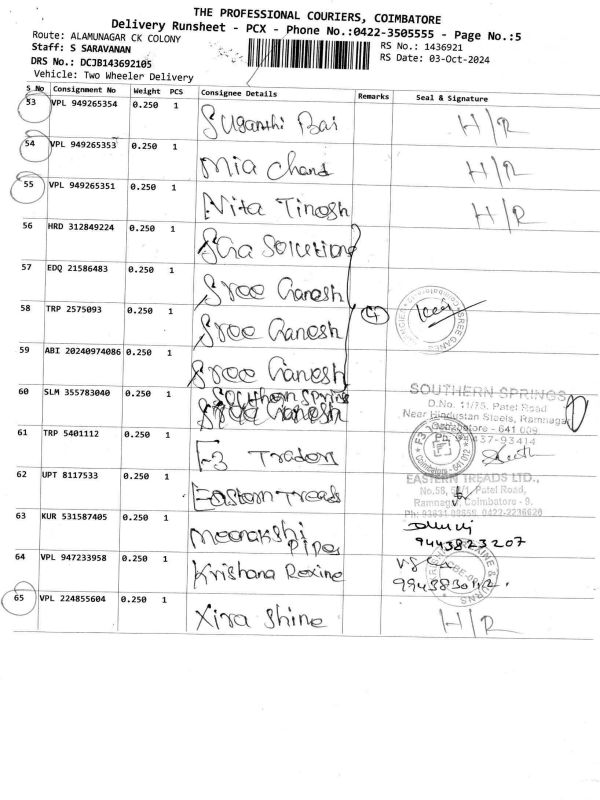 THE PROFESSIONAL COURIERS, COIMBATORE
Delivery Runsheet - PCX - Phone No.:0422-3505555 - Page No.:5
Route: ALAMUNAGAR CK COLONY
RS No.: 1436921
Staff: S SARAVANAN
RS Date: 03-Oct-2024
DRS No.: DCJB143692105
Vehicle: Two Wheeler Delivery
S No Consignment No Weight PCS Consignee Details Remarks Seal & Signature
53 VPL 949265354 0.250 1 Suganthi Bai H/R
54 VPL 949265353 0.250 1 Mia Chand H/R
55 VPL 949265351 0.250 1 Nita Tinosh H/R
56 HRD 312849224 0.250 1 Solutions
57 EDQ 21586483 0.250 1 Sree Ganesh
58 TRP 2575093 0.250 1 Sree Ganesh 4
59 ABI 20240974086 0.250 1 Sree Ganesh
60 SLM 355783040 0.250 1 Southern Spring
SOUTHERN SPRINGS
D.No. 11/75, Patel Road
Near Hindustan Steels, Ramnagar
Coimbatore - 641 009
61 TRP 5401112 0.250 1 F3 Traders
62 UPT 8117533 0.250 1 Eastern Treads
EASTERN TREADS LTD.,
Patel Road,
Ramnagar, Coimbatore - 9.
63 KUR 531587405 0.250 1 Meenakshi Pipes
9443823207
64 VPL 947233958 0.250 1 Krishana Rexine
65 VPL 224855604 0.250 1 Xira Shine H/R